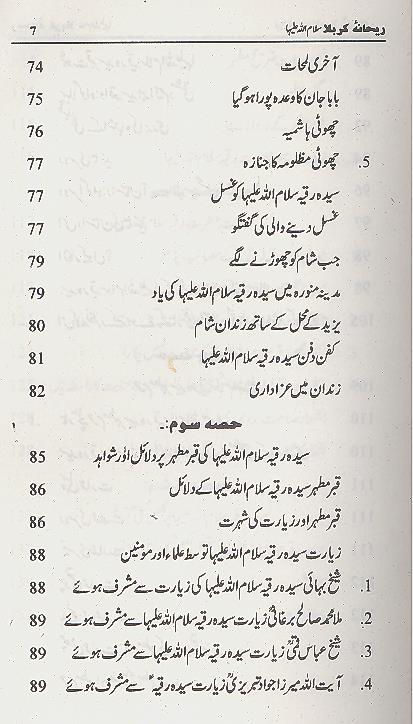 ریحانۂ کربلا سلام اللہ علیہا 7
آخری لمحات 74
بابا جان کا وعدہ پورا ہو گیا 75
چھوٹی ہاشمیہ 76
5. چھوٹی مظلومہ کا جنازہ 77
سیدہ رقیہ سلام اللہ علیہا کو غسل 77
غسل دینے والی کی گفتگو 77
جب شام کو چھوڑنے لگے 79
مدینہ منورہ میں سیدہ رقیہ سلام اللہ علیہا کی یاد 79
یزید کے محل کے ساتھ زندان شام 80
کفن دفن سیدہ رقیہ سلام اللہ علیہا 81
زندان میں عزاداری 82
حصہ سوم:۔
سیدہ رقیہ سلام اللہ علیہا کی قبر مطہر پر دلائل اور شواہد 85
قبر مطہر سیدہ رقیہ سلام اللہ علیہا کے دلائل 86
قبر مطہر اور زیارت کی شہرت 86
زیارت سیدہ رقیہ سلام اللہ علیہا توسط علماء اور مومنین 88
1. شیخ بہائی سیدہ رقیہ سلام اللہ علیہا کی زیارت سے مشرف ہوئے 88
2. ملا محمد صالح برغانیؒ زیارت سیدہ رقیہ سلام اللہ علیہا سے مشرف ہوئے 89
3. شیخ عباس قمیؒ زیارت سیدہ رقیہ سلام اللہ علیہا سے مشرف ہوئے 89
4. آیت اللہ میرزا جواد تبریزیؒ زیارت سیدہ رقیہؑ سے مشرف ہوئے 89